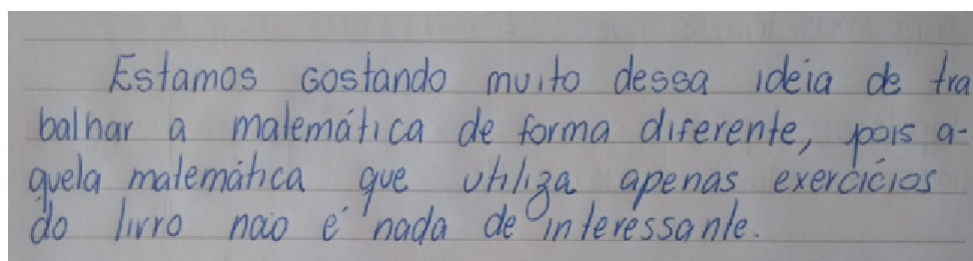 Estamos gostando muito dessa ideia de tra
balhar a matemática de forma diferente, pois a-
quela matemática que utiliza apenas exercícios
do livro não é nada de interessante.